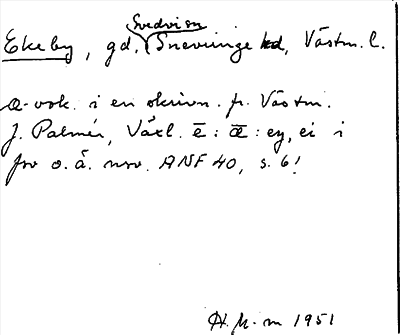 Svedvi sn
Ekeby, gd, (Snevringe hd, Västm. l.
æ-vok. i en skrivn. fr. Västm.
J. Palmér, Växl. ē : ǣ : ey, ei i
fsv o. å. nsv. ANF 40, s. 6!
H. m 1951